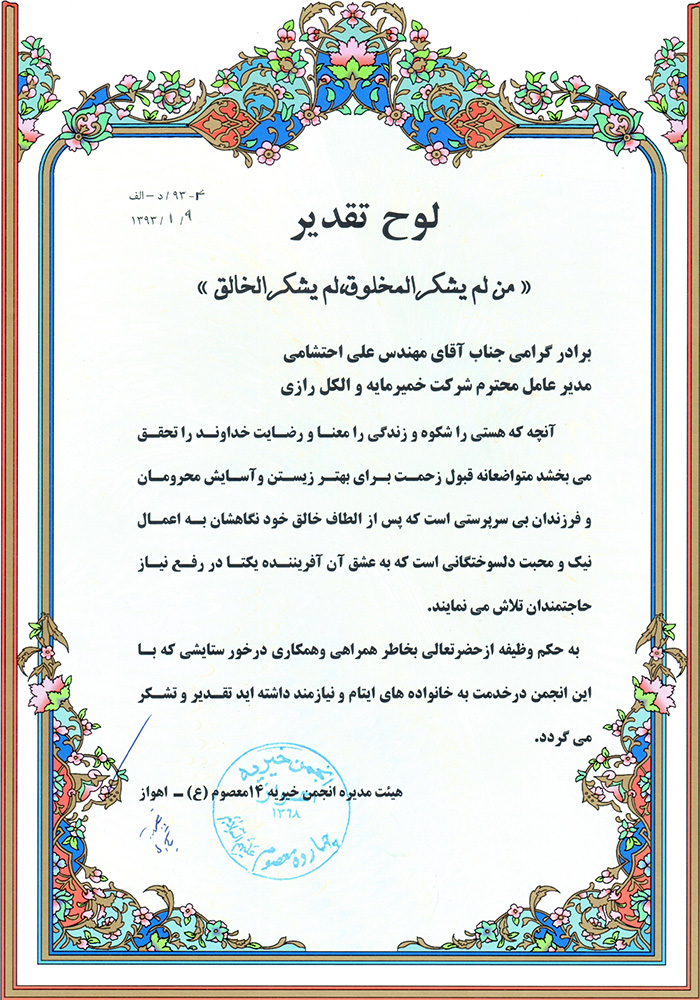 ۹۳-۴ / د – الف
۱۳۹۳ / ۱ / ۹
لوح تقدیر
« من لم یشکر المخلوق،لم یشکر الخالق »
برادر گرامی جناب آقای مهندس علی احتشامی
مدیر عامل محترم شرکت خمیرمایه و الکل رازی
آنچه که هستی را شکوه و زندگی را معنا و رضایت خداوند را تحقق
می بخشد متواضعانه قبول زحمت برای بهتر زیستن وآسایش محرومان
و فرزندان بی سرپرستی است که پس از الطاف خالق خود نگاهشان به اعمال
نیک و محبت دلسوختگانی است که به عشق آن آفریننده یکتا در رفع نیاز
حاجتمندان تلاش می نمایند.
به حکم وظیفه ازحضرتعالی بخاطر همراهی وهمکاری درخور ستایشی که با
این انجمن درخدمت به خانواده های ایتام و نیازمند داشته اید تقدیر و تشکر
می گردد.
هیئت مدیره انجمن خیریه ۱۴معصوم (ع) – اهواز
انجمن خیریه
۱۳۶۸
چهارده معصوم
علیهم السلام